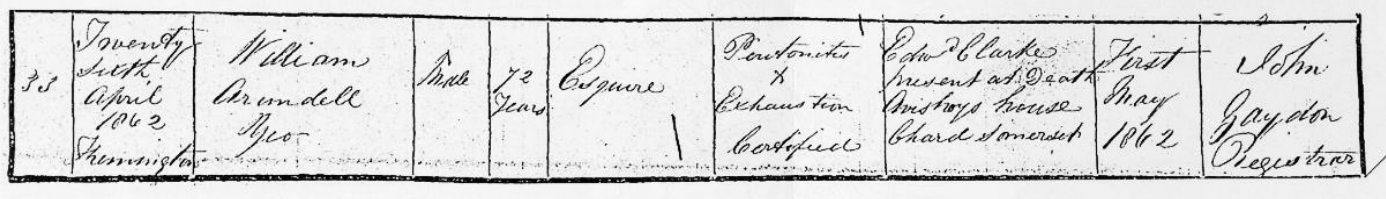 33
Twenty
Sixth
April
1862
Fremington
William
Arundell
Yeo
Male
72
Years
Esquire
Peritonitis
&
Exhaustion
Certified
Edwd Clarke
present at Death
house
Chard Somerset
First
May
1862
John
Gaydon
Registrar